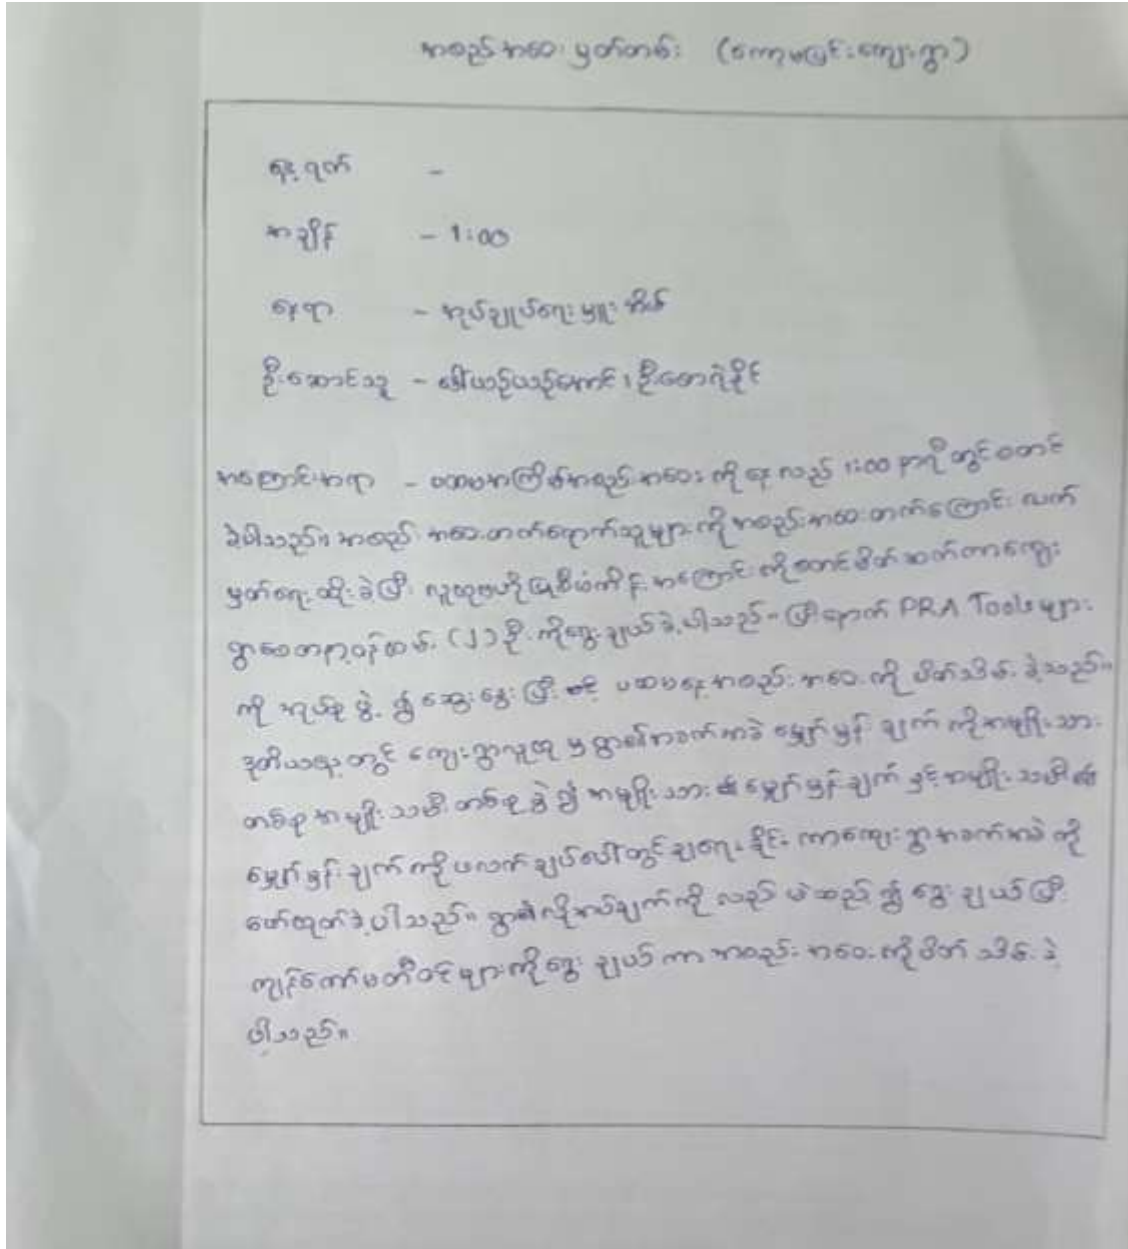 အစည်းအဝေး မှတ်တမ်း (ကော့မပြင်းကျေးရွာ)
ရန့်ရက် -
အချိန် - 1:00
နေရာ - အုပ်ချုပ်ရေးမှူး အိမ်
ဦးဆောင်သူ - ဒေါ်ယဉ်ယဉ်အောင်၊ ဦးဇော်ရဲနိုင်
အကြောင်းအရာ - ပထမအကြိမ်အစည်းအဝေး ကို နေ့လည် 1:00 နာရီ တွင် စတင်
ခဲ့ပါသည်။ အစည်းအဝေးတက်ရောက်သူများကို အစည်းအဝေးတက်ကြောင်း လက်
မှတ်ရေးထိုးခဲ့ပြီး လူထုဗဟိုပြုစီမံကိန်းအကြောင်းကို စတင်မိတ်ဆက်ကာကျေး
ရွာစေတနာ့ဝန်ထမ်း (၂) ဦး ကိုရွေးချယ်ခဲ့ပါသည်။ ပြီးနောက် PRA Tools များ
ကို အုပ်စုဖွဲ့၍ ဆွေးနွေးပြီး ပထမနေ့အစည်းအဝေးကို ပိတ်သိမ်းခဲ့သည်။
ဒုတိယနေ့တွင် ကျေးရွာလူထုမှ ရွာ၏အခက်အခဲ မျှော်မှန်းချက်ကို အမျိုးသား
တစ်စု အမျိုးသမီးတစ်စုဖွဲ့၍ အမျိုးသား၏ မျှော်မှန်းချက် နှင့် အမျိုးသမီး၏
မျှော်မှန်းချက်ကို ပလက်ချပ်ပေါ်တွင် ချရေးခိုင်းကာကျေးရွာအခက်အခဲကို
ဖော်ထုတ်ခဲ့ပါသည်။ ရွာ၏လိုအပ်ချက်ကိုလည်း မဲထည့်၍ ရွေးချယ်ပြီး
ကျန်ကော်မတီဝင်များကိုရွေးချယ်ကာ အစည်းအဝေးကိုပိတ်သိမ်းခဲ့
ပါသည်။